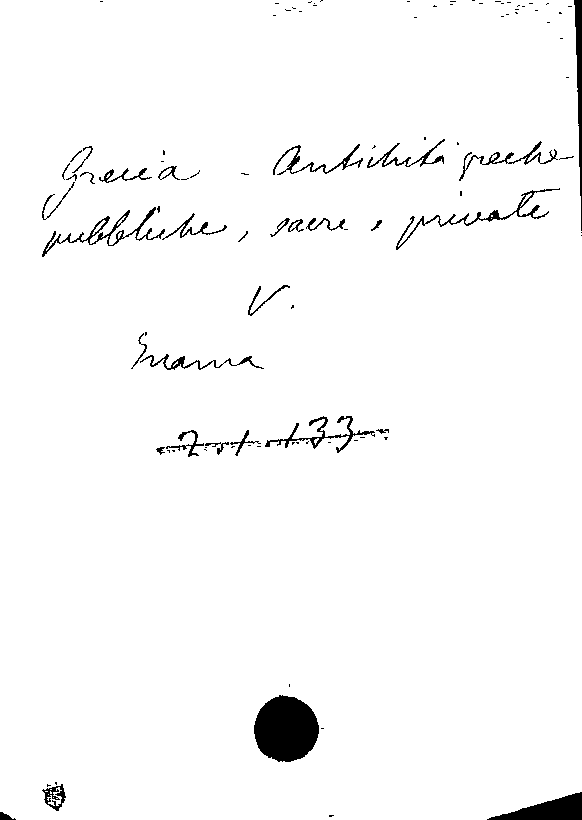 Grecia - Antichità greche
pubbliche, sacre e private
V.
Inama
2.1.133